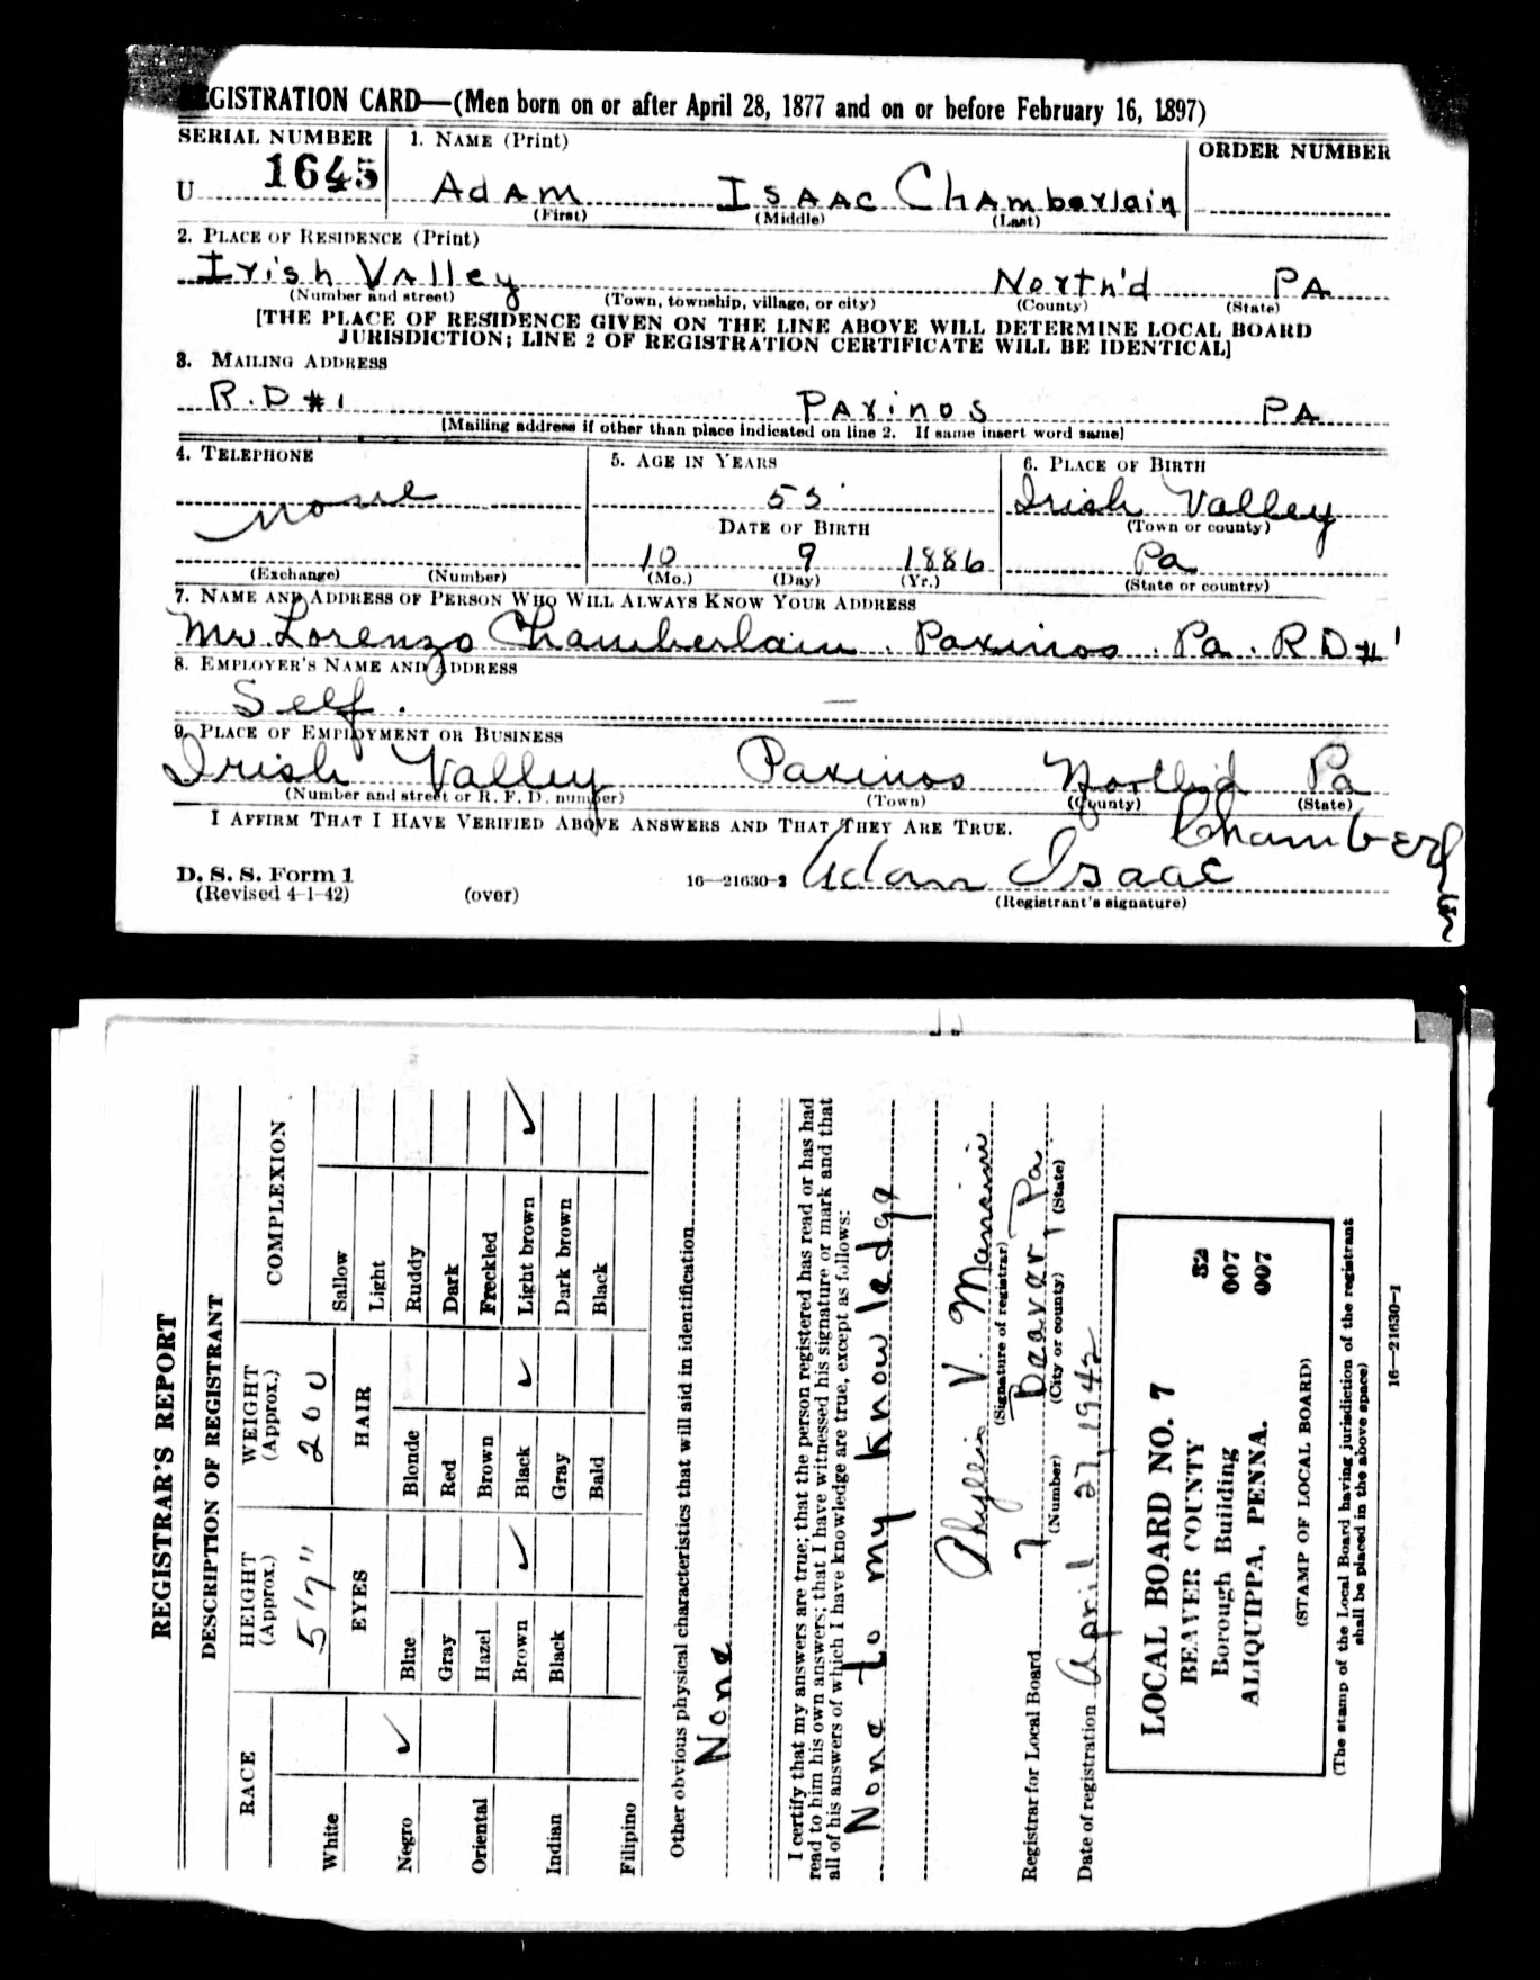 REGISTRATION CARD—(Men born on or after April 28, 1877 and on or before February 16, 1897)
SERIAL NUMBER
1. NAME (Print)
ORDER NUMBER
U 1645
Adam Isaac Chamberlain
(First) (Middle) (Last)
2. PLACE OF RESIDENCE (Print)
Irish Valley North'd PA
(Number and street) (Town, township, village, or city) (County) (State)
[THE PLACE OF RESIDENCE GIVEN ON THE LINE ABOVE WILL DETERMINE LOCAL BOARD
JURISDICTION; LINE 2 OF REGISTRATION CERTIFICATE WILL BE IDENTICAL]
3. MAILING ADDRESS
R.D #1 Paxinos PA
[Mailing address if other than place indicated on line 2. If same insert word same]
4. TELEPHONE
none
(Exchange) (Number)
5. AGE IN YEARS
55
DATE OF BIRTH
10 9 1886
(Mo.) (Day) (Yr.)
6. PLACE OF BIRTH
Irish Valley
(Town or county)
Pa
(State or country)
7. NAME AND ADDRESS OF PERSON WHO WILL ALWAYS KNOW YOUR ADDRESS
Mr. Lorenzo Chamberlain. Paxinos. Pa. R D #1
8. EMPLOYER'S NAME AND ADDRESS
Self. —
9. PLACE OF EMPLOYMENT OR BUSINESS
Irish Valley Paxinos North'd Pa
(Number and street or R. F. D. number) (Town) (County) (State)
I AFFIRM THAT I HAVE VERIFIED ABOVE ANSWERS AND THAT THEY ARE TRUE.
D. S. S. Form 1
(Revised 4-1-42) (over) 16—21630-2
Adam Isaac Chamberl
(Registrant's signature)
REGISTRAR'S REPORT
DESCRIPTION OF REGISTRANT
RACE
White
Negro ✓
Oriental
Indian
Filipino
HEIGHT
(Approx.)
5'7"
WEIGHT
(Approx.)
200
EYES
Blue
Gray
Hazel
Brown ✓
Black
HAIR
Blonde
Red
Brown
Black ✓
Gray
Bald
COMPLEXION
Sallow
Light
Ruddy
Dark
Freckled
Light brown ✓
Dark brown
Black
Other obvious physical characteristics that will aid in identification
None
I certify that my answers are true; that the person registered has read or has had
read to him his own answers; that I have witnessed his signature or mark and that
all of his answers of which I have knowledge are true, except as follows:
None to my knowledge
Phyllis V. Mancini
(Signature of registrar)
Registrar for Local Board 7 Beaver Pa.
(Number) (City or county) (State)
Date of registration April 27, 1942
LOCAL BOARD NO. 7
BEAVER COUNTY
Borough Building
ALIQUIPPA, PENNA.
32
007
007
(STAMP OF LOCAL BOARD)
(The stamp of the Local Board having jurisdiction of the registrant
shall be placed in the above space)
16—21630-1